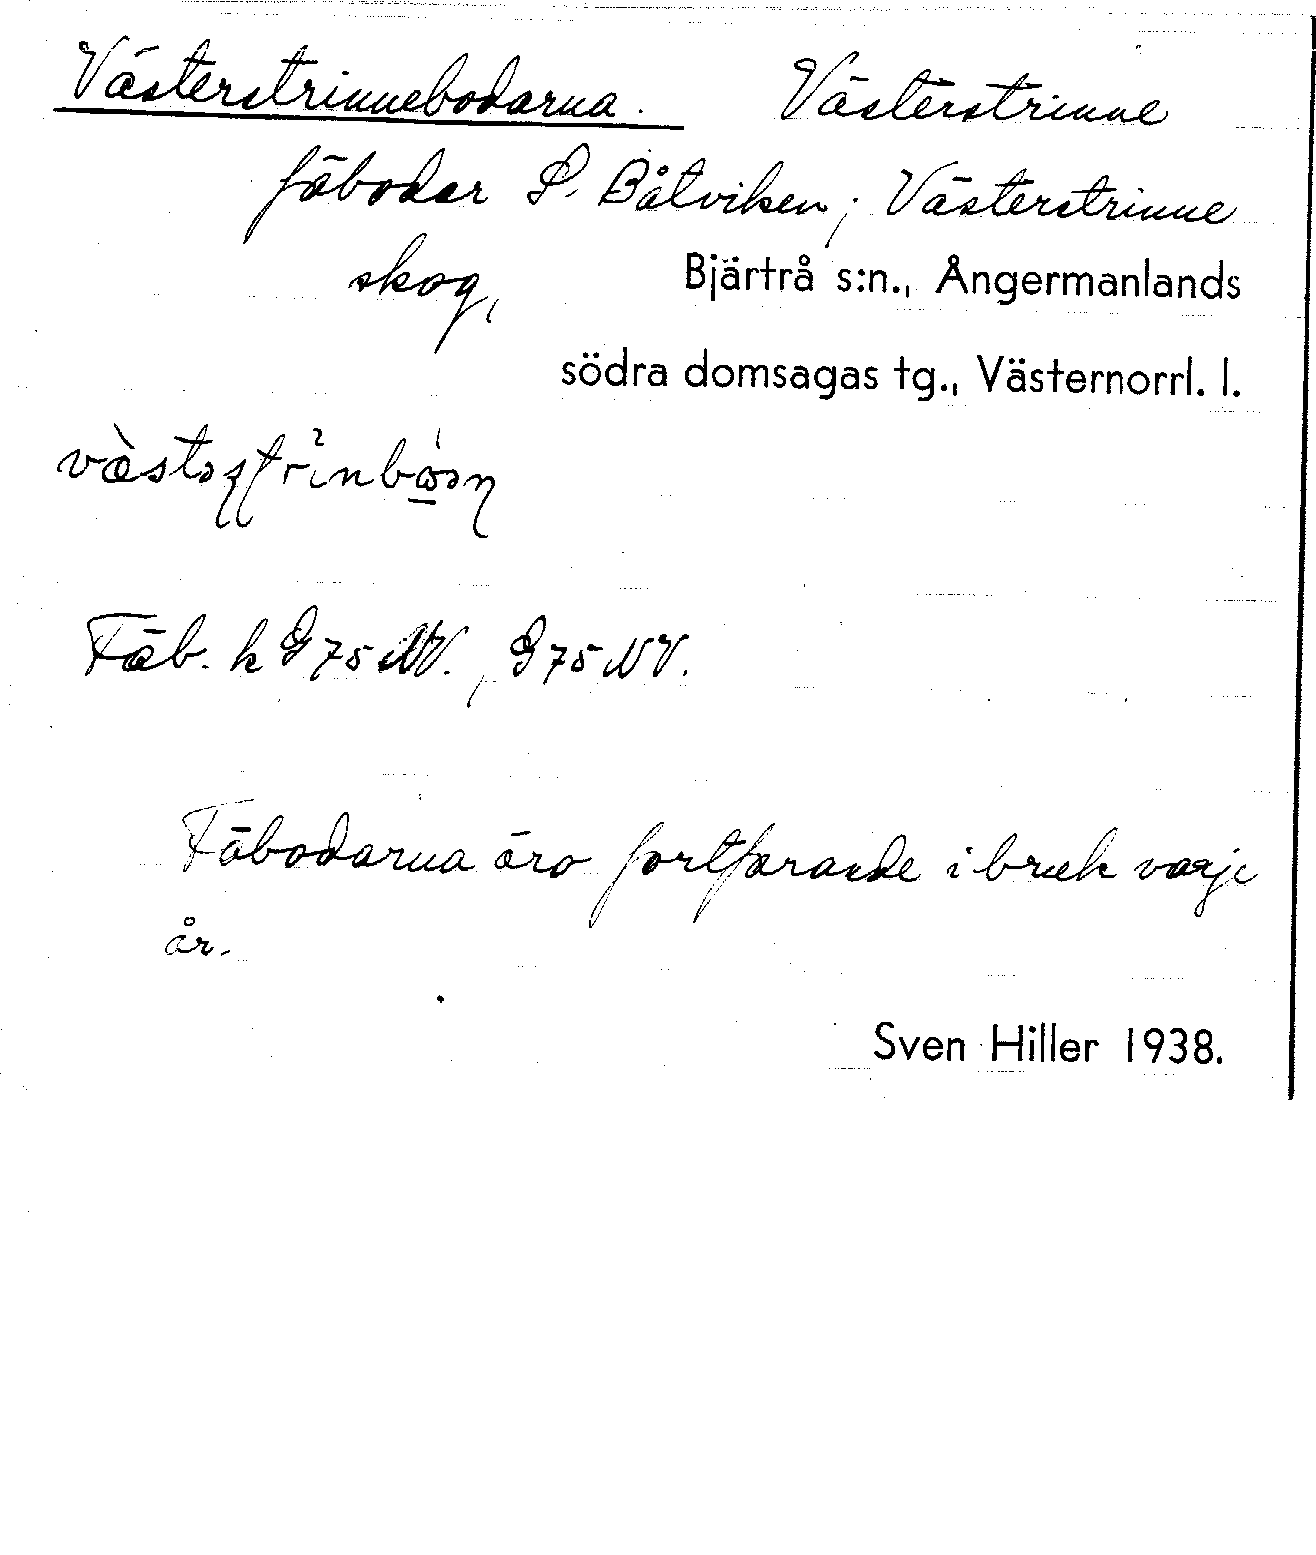 Västerstrinnebodarna. Västerstrinne
fäbodar S. Båtviken; Västerstrinne
skog, Bjärtrå s:n., Ångermanlands
södra domsagas tg., Västernorrl. l.
Fäb. k G 75 NV., G 75 NV.
Fäbodarna äro fortfarande i bruk varje
år.
Sven Hiller 1938.